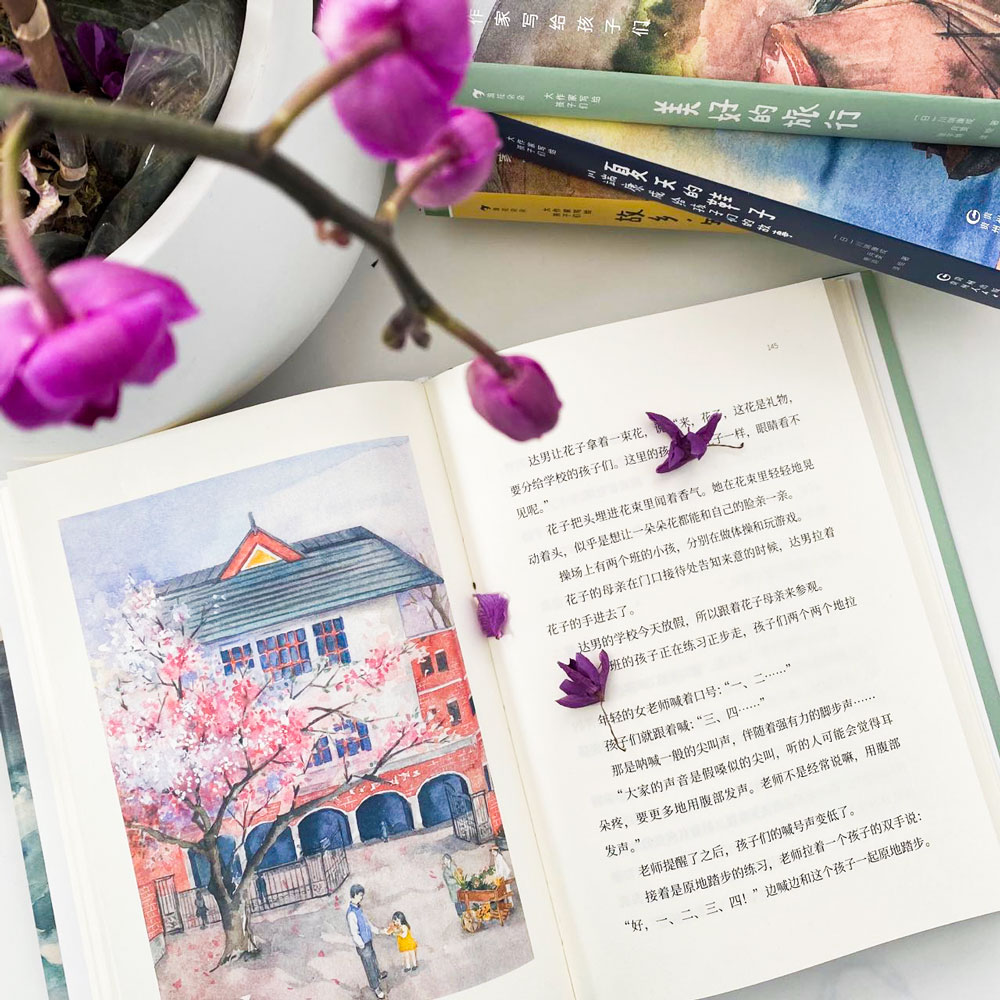 作家写给孩子们
大作家写给
孩子们
美好的旅行
大作家写给
孩子们
夏天的鞋子
川端康成给孩子们的故事
大作家写给
孩子们
故乡
145
达男让花子拿着一束花，“来，花子，这花是礼物，
要分给学校的孩子们。这里的孩子一样，眼睛看不
见呢。”
花子把头埋进花束里闻着香气。她在花束里轻轻地晃
动着头，似乎是想让一朵朵花都能和自己的脸亲一亲。
操场上有两个班的小孩，分别在做体操和玩游戏。
花子的母亲在门口接待处告知来意的时候，达男拉着
花子的手进去了。
达男的学校今天放假，所以跟着花子母亲来参观。
班的孩子正在练习正步走，孩子们两个两个地拉
年轻的女老师喊着口号：“一、二……”
孩子们就跟着喊：“三、四……”
那是呐喊一般的尖叫声，伴随着强有力的脚步声……
“大家的声音是假嗓似的尖叫，听的人可能会觉得耳
朵疼，要更多地用腹部发声。老师不是经常说嘛，用腹部
发声。”
老师提醒了之后，孩子们的喊号声变低了。
接着是原地踏步的练习，老师拉着一个孩子的双手说：
“好，一、二、三、四！”边喊边和这个孩子一起原地踏步。